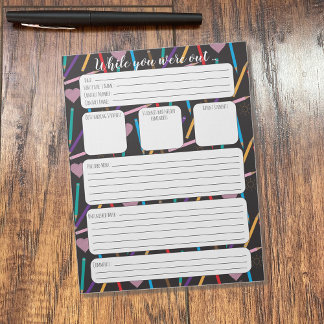 While you were out ...
Date:
Substitute's Name:
Contact Number:
Contact Email:
Outstanding Students:
Students who needed
reminders:
Absent Students:
Unfinished Work:
Comments: